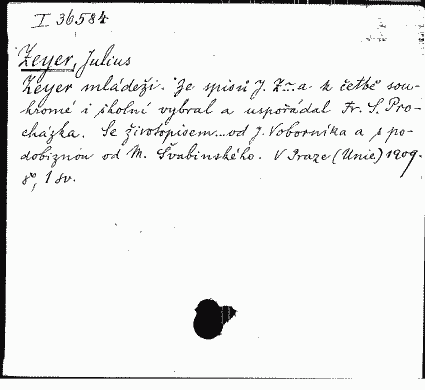 I 36584
Zeyer, Julius
Zeyer mládeži. Ze spisů J. Z...a k četbě sou-
kromé i školní vybral a uspořádal Fr. S. Pro-
cházka. Se životopisem...od J. Voborníka a s po-
dobiznou od M. Švabinského. V Praze (Unie) 1909.
8°, 1 sv.